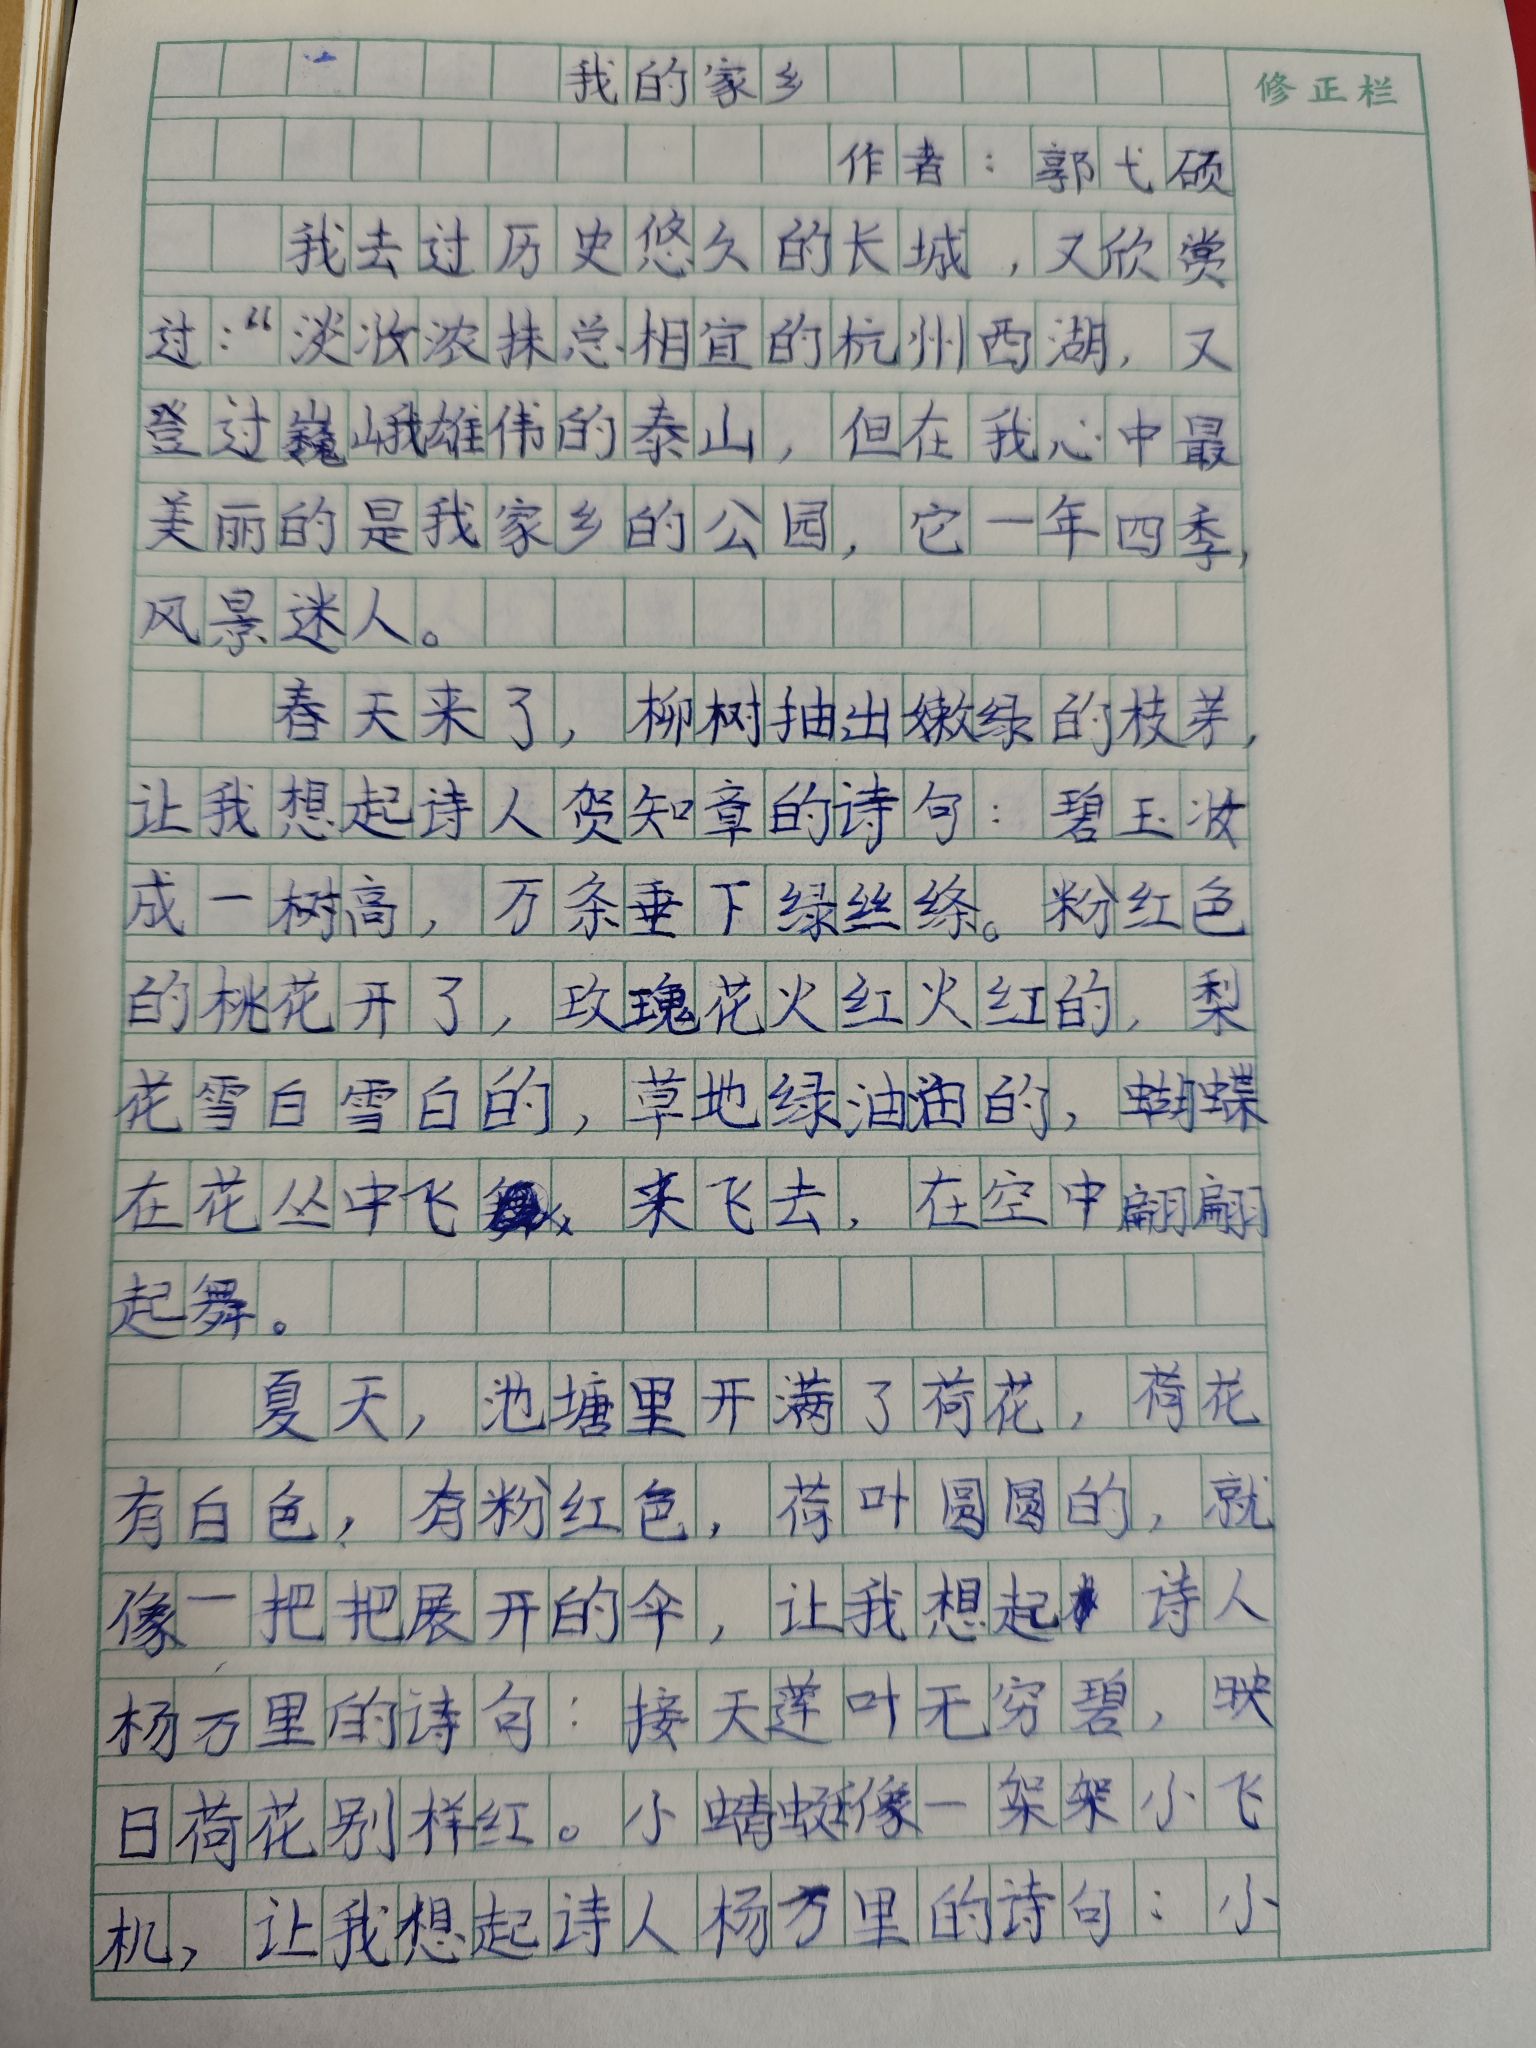 我的家乡
修正栏
作者：郭弋硕
我去过历史悠久的长城，又欣赏
过：“淡妆浓抹总相宜的杭州西湖，又
登过巍峨雄伟的泰山，但在我心中最
美丽的是我家乡的公园，它一年四季，
风景迷人。
春天来了，柳树抽出嫩绿的枝芽，
让我想起诗人贺知章的诗句：碧玉妆
成一树高，万条垂下绿丝绦。粉红色
的桃花开了，玫瑰花火红火红的，梨
花雪白雪白的，草地绿油油的，蝴蝶
在花丛中飞来飞去，在空中翩翩
起舞。
夏天，池塘里开满了荷花，荷花
有白色，有粉红色，荷叶圆圆的，就
像一把把展开的伞，让我想起诗人
杨万里的诗句：接天莲叶无穷碧，映
日荷花别样红。小蜻蜓像一架架小飞
机，让我想起诗人杨万里的诗句：小